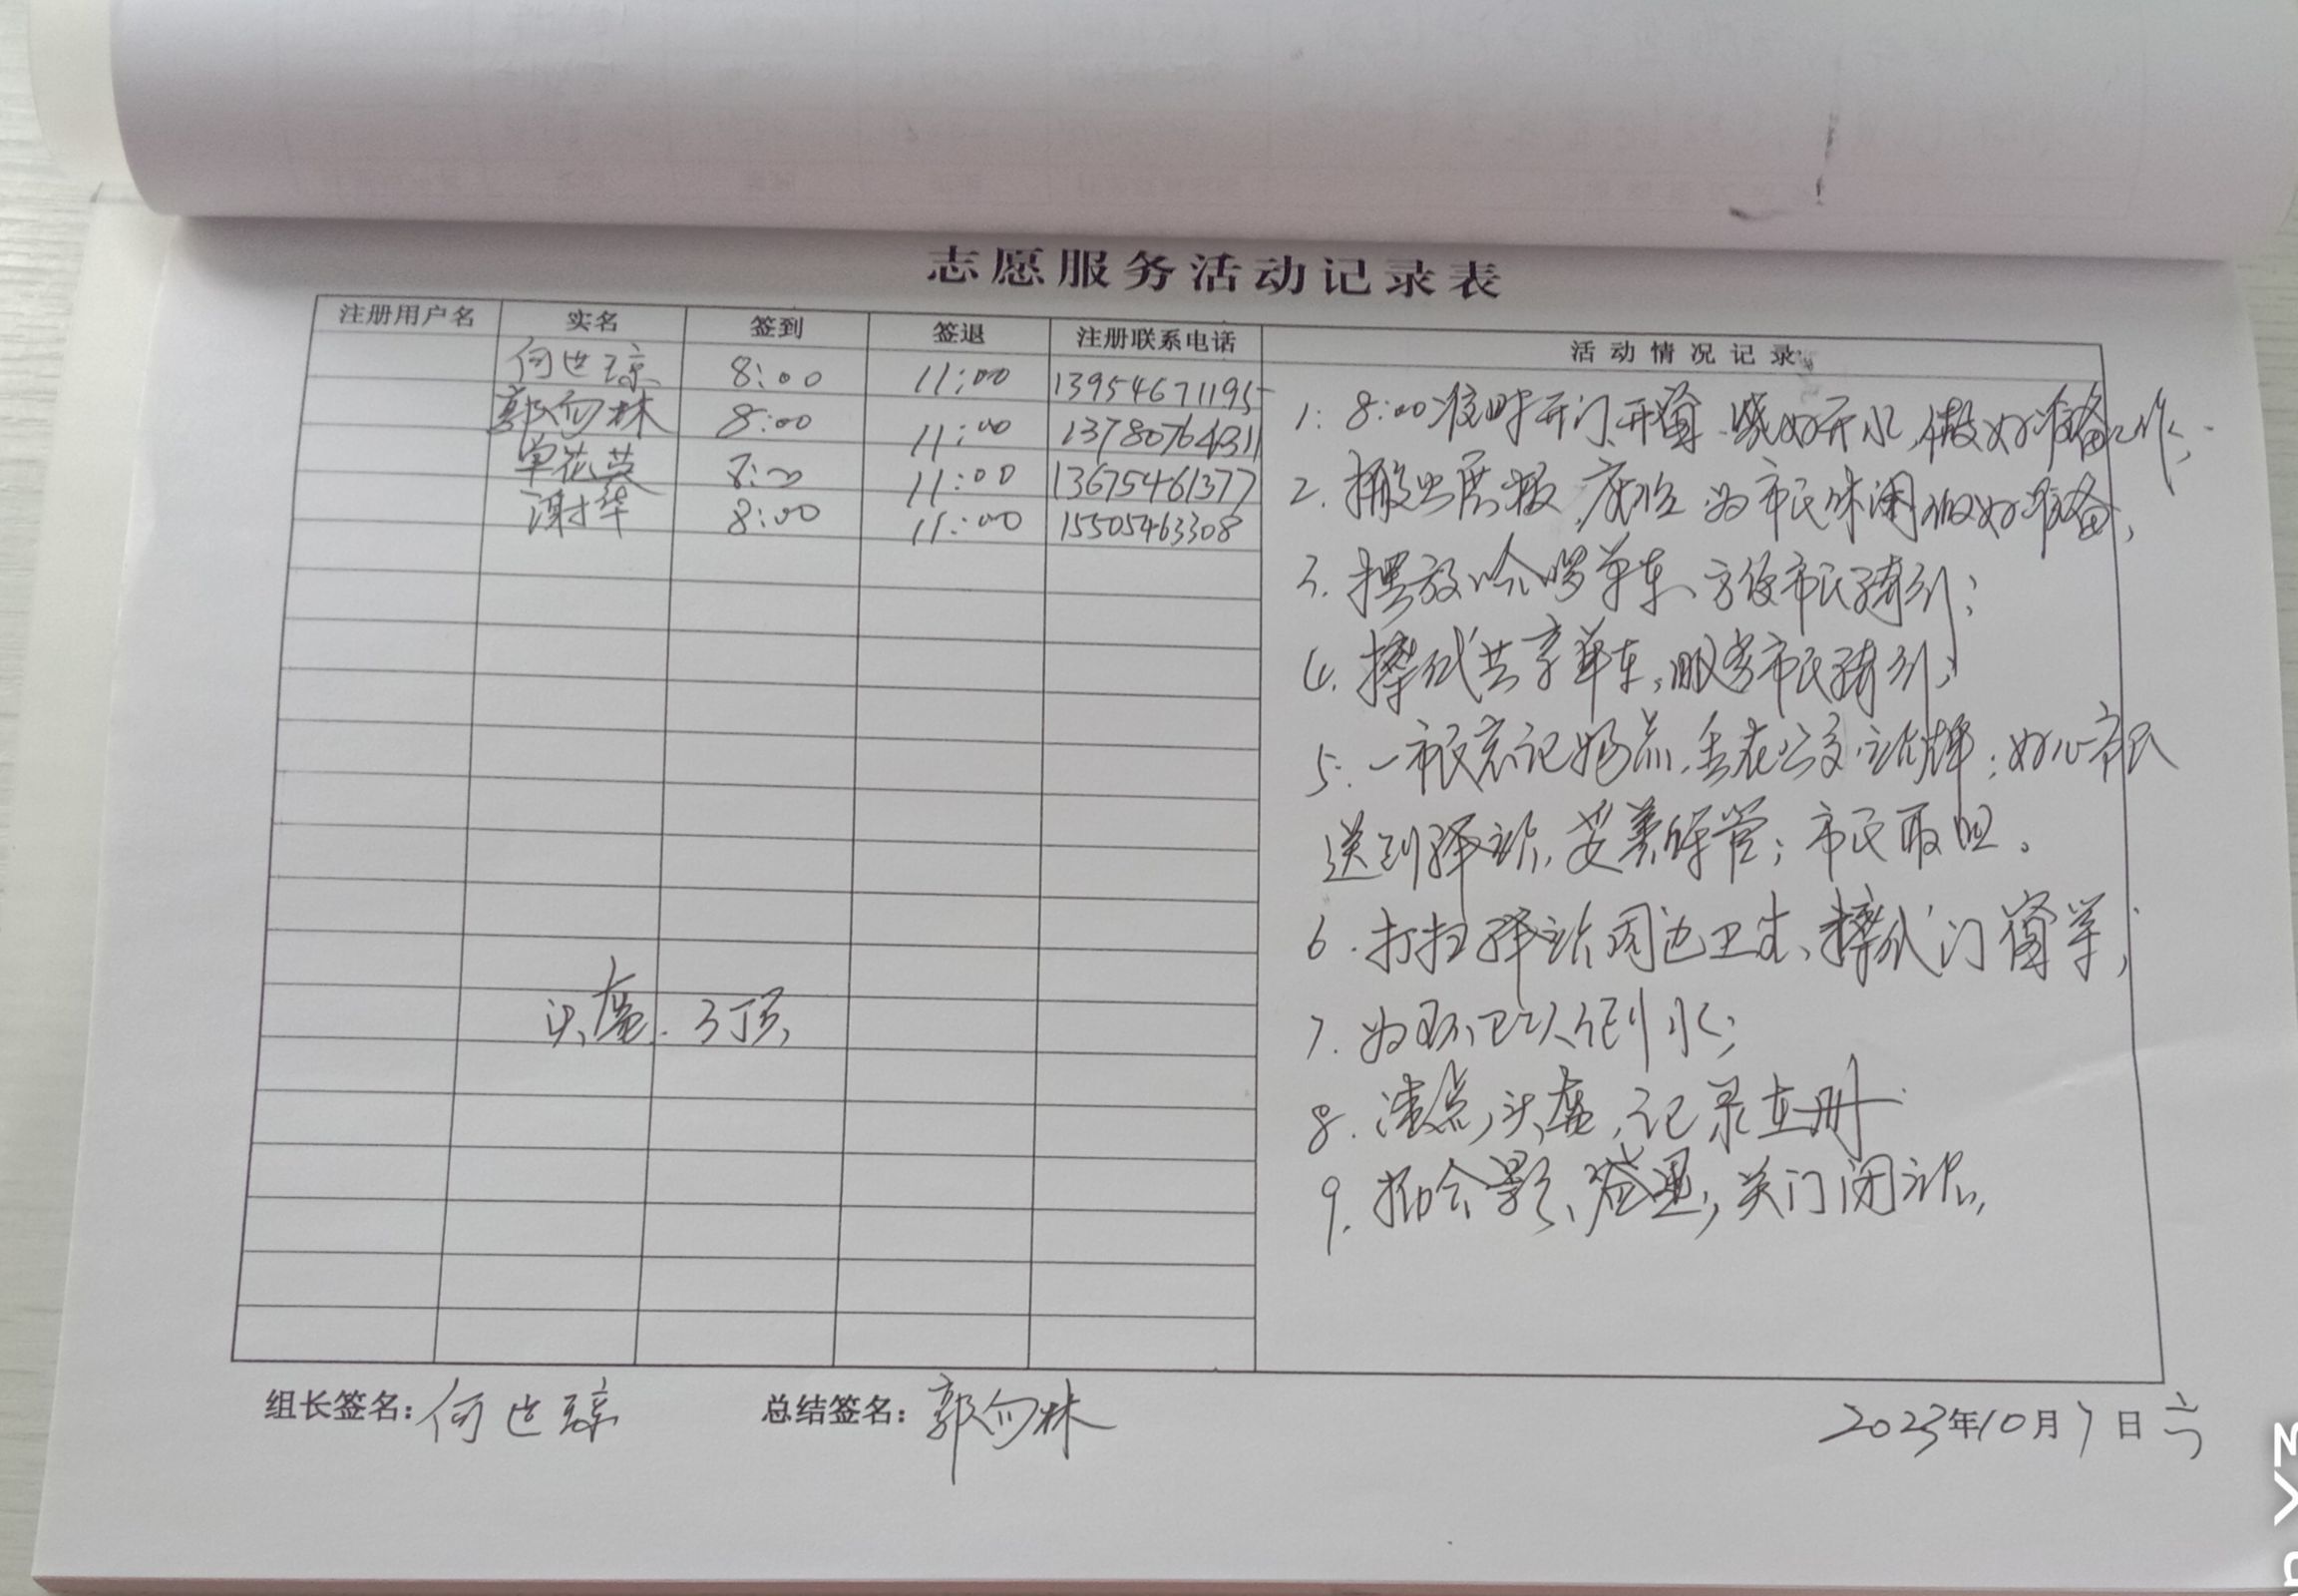 志愿服务活动记录表
注册用户名 实名 签到 签退 注册联系电话 活动情况记录
何世琼 8:00 11:00 13954671195
郭向林 8:00 11:00 13780764311
单花英 8:00 11:00 13675461377
谢华 8:00 11:00 15505463308
头盔.3顶
1. 8:00准时开门、开窗、烧好开水,做好准备工作;
2. 搬出展板、座位 为市民休闲做好准备,
3. 摆放哈啰单车、方便市民骑行;
4. 擦拭共享单车,服务市民骑行;
5. 一市民忘记物品,丢在公交站牌;好心市民
送到驿站,妥善保管;市民取回。
6. 打扫驿站周边卫生、擦拭门窗等;
7. 为环卫工人倒水;
8. 清点头盔,记录在册
9. 拍合影、签退,关门闭站。
组长签名:何世琼 总结签名:郭向林 2023年10月7日 六